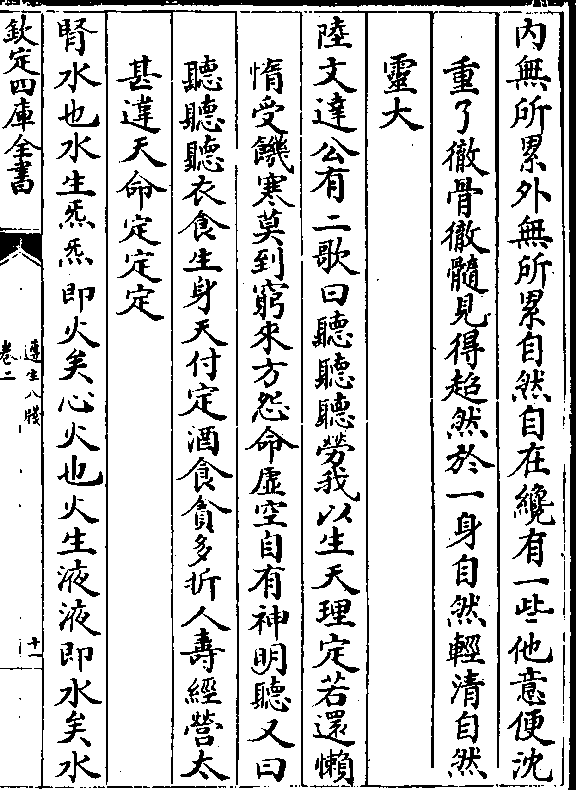 內無所累外無所累自然自在纔有一些他意便沈
重了徹骨徹髓見得超然於一身自然輕清自然
靈大
陸文達公有二歌曰聽聽聽勞我以生天理定若還懶
惰受饑寒莫到窮來方怨命虛空自有神明聽又曰
聽聽聽衣食生身天付定酒食貪多折人壽經營太
甚違天命定定定
腎水也水生炁炁即火矣心火也火生液液即水矣水
欽定四庫全書
遵生八牋
卷二
十一